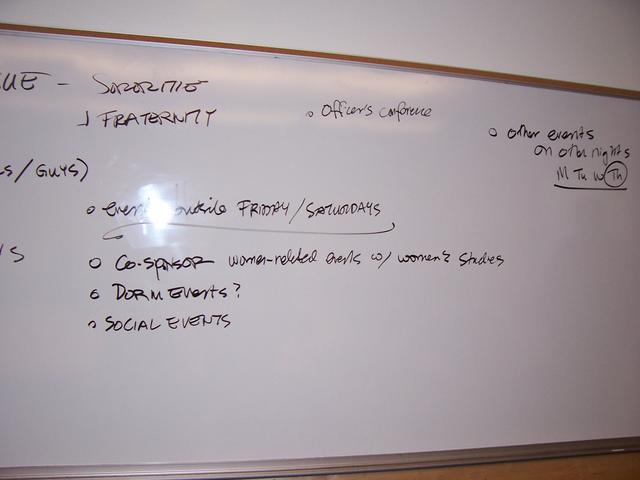 UE - SORORITIE
FRATERNITY
o Officer's conference
o other events
on other nights
M Tu W Th
S/GUYS)
o events outside FRIDAY/SATURDAYS
S
o CO-SPONSOR women-related events w/ women's studies
o DORM EVENTS?
o SOCIAL EVENTS